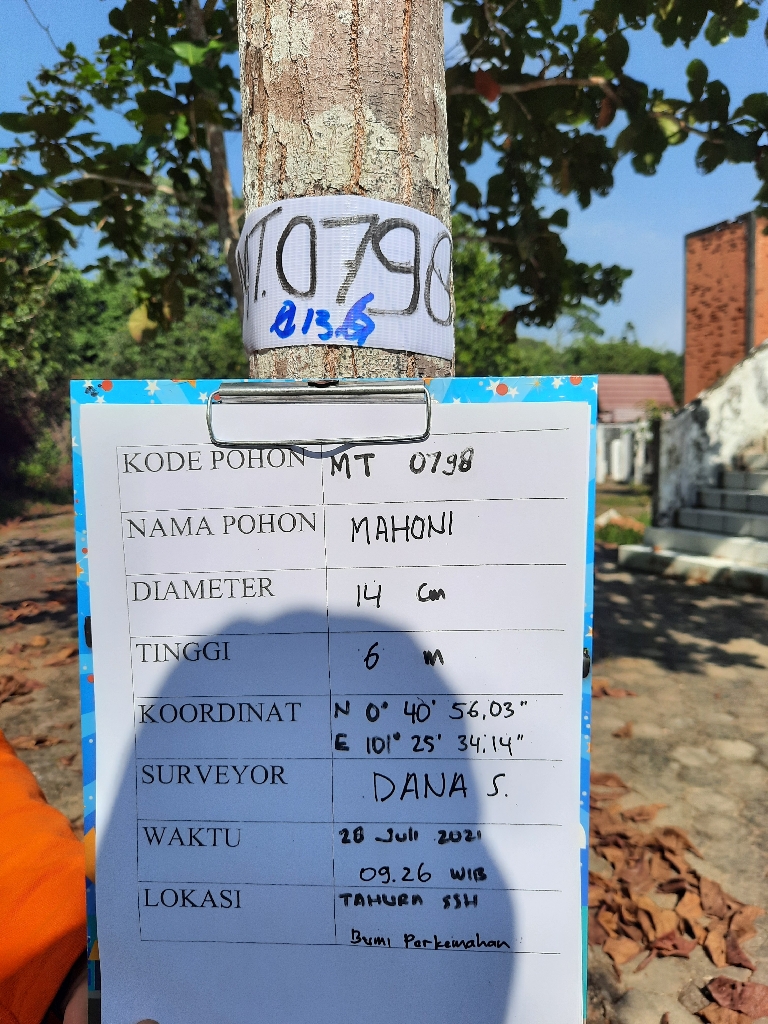 MT.0798
13.6
KODE POHON MT 0798
NAMA POHON MAHONI
DIAMETER 14 Cm
TINGGI 6 m
KOORDINAT N 0° 40' 56,03"
E 101° 25' 34,14"
SURVEYOR DANA S.
WAKTU 28 Juli 2021
09.26 WIB
LOKASI TAHURA SSH
Bumi Perkemahan